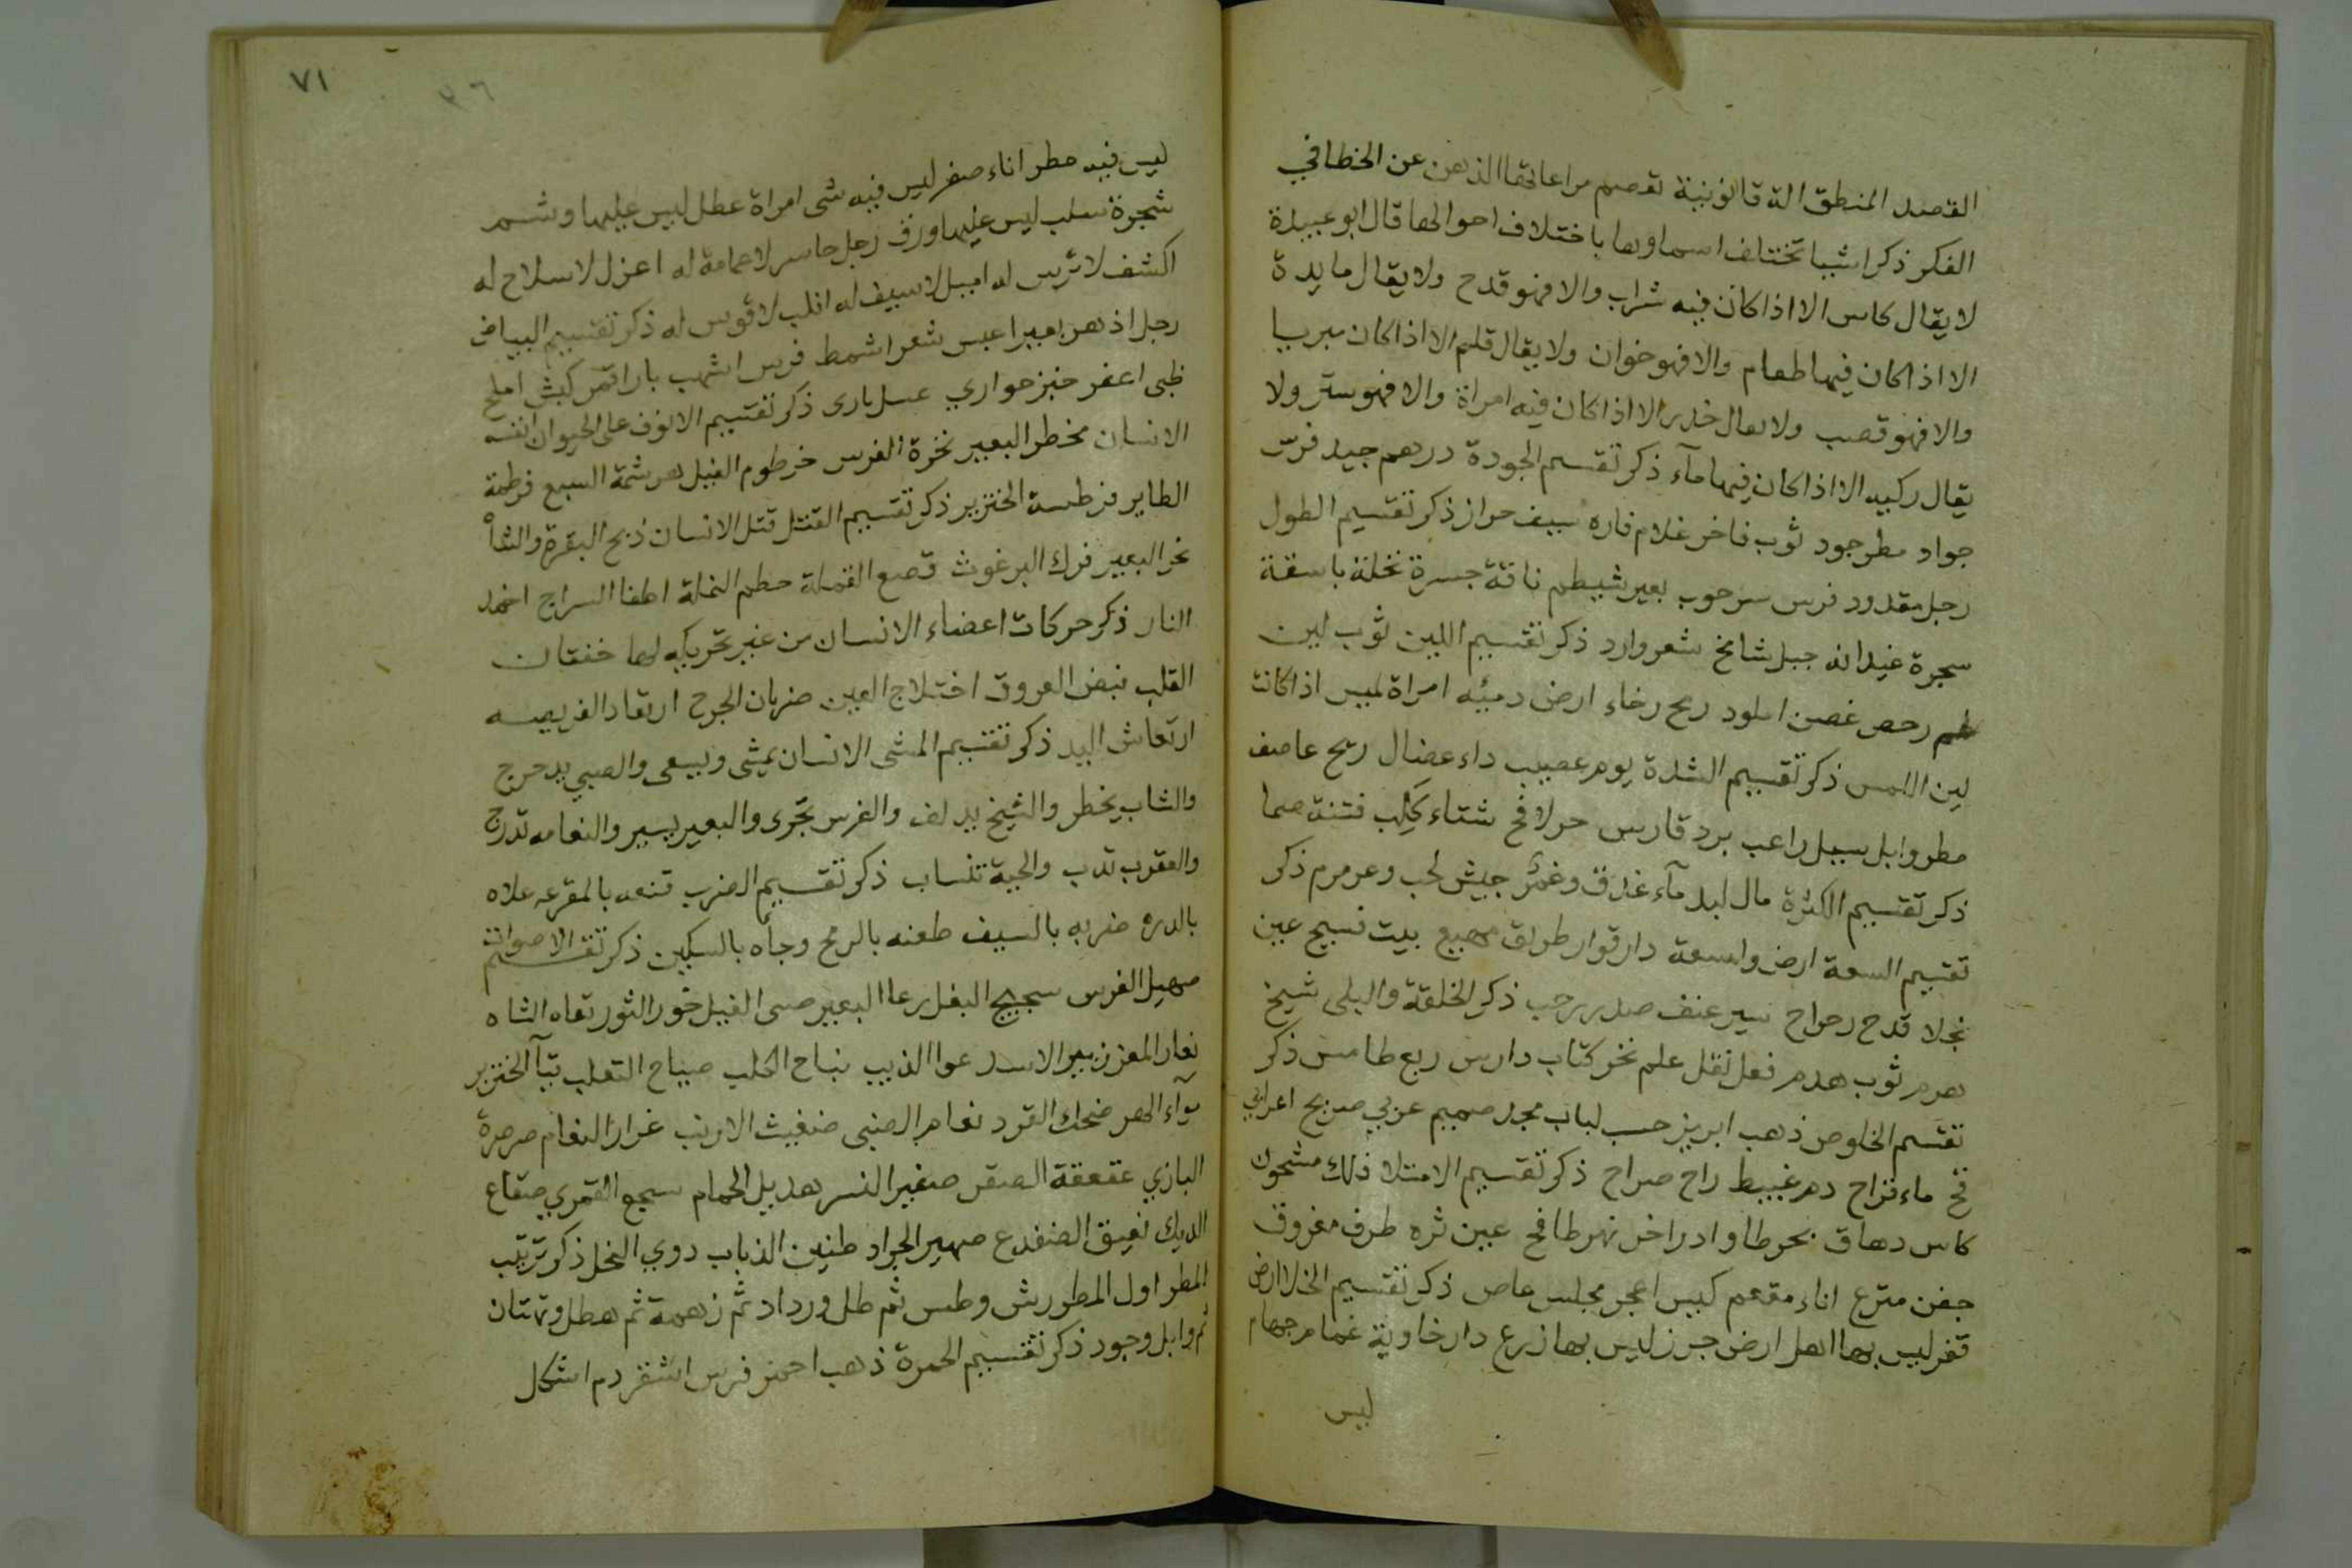 القصد المنطق الة قانونية تعصم مراعاتها الذهن عن الخطا في
الفكر ذكر اشيا تختلف اسماوها باختلاف احوالها قال ابو عبيدة
لا يقال كاس الا اذا كان فيه شراب والا فهو قدح ولا يقال مايدة
الا اذا كان فيها طعام والا فهو خوان ولا يقال قلم الا اذا كان مبريا
والا فهو قصب ولا يقال خدر الا اذا كان فيه امراة والا فهو ستر ولا
يقال ركيه الا اذا كان فيها مآء ذكر تقسيم الجودة درهم جيد فرس
جواد مطر جود ثوب فاخر غلام فاره سيف حراز ذكر تقسيم الطول
رجل مقدود فرس سرحوب بعير شيطم ناقة جسرة نخلة باسقة
سجرة عيدانه جبل شامخ شعر وارد ذكر تقسيم اللين ثوب لين
رحص غصن املود ريح رخاء ارض دميه امراة لميس اذا كانت
لين اللمس ذكر تقسيم الشدة يوم عصيب داء عضال ريح عاصف
مطر وابل سيل راعب برد قارس حر لافح شتاء كلب فتنة صما
ذكر تقسيم الكثرة مال لبد مآء غدق وغمر جيش لجب وعرمرم ذكر
تقسيم السعة ارض واسعة دار قوار طريق مهيع بيت فسيح عين
نجلا قدح رحراح سير عنف صدر رحب ذكر الخلقة والبلى شيخ
هرم ثوب هدم فعل نقل علم نخر كتاب دارس ربع طامس ذكر
تقسم الخلوص ذهب ابريز حسب لباب مجد صميم عربي صريح اعرابي
قح ماء قراح دم غبيط راح صراح ذكر تقسيم الامتلا فلك مشحون
كاس دهاق بحر طا واد زاخر نهر طافح عين ثره طرف مغروق
جفن مترع اناء مفعم كيس اعجر مجلس عاص ذكر تقسيم الخلا ارض
قفر ليس بها اهل ارض جرز ليس بها زرع دار خاوية غمام جهام
ليس
٧١
٣٦
ليس فيه مطر اناء صفر ليس فيه شى امراة عطل ليس عليها وشم
شجرة سلب ليس عليها ورق رجل حاسر لا عمامة له اعزل لا سلاح له
اكشف لا ترس له اميل لا سيف له انلب لا قوس له ذكر تقسيم البياض
رجل ازهر بعير اعيس شعر اشمط فرس اشهب باز اقمر كبش املح
ظبى اعفر خبز حواري عسل مارى ذكر تقسيم الانوف على الحيوان انف
الانسان مخطر البعير نخرة الفرس خرطوم الفيل هرثمة السبع قرطمة
الطاير فرطسة الخنزير ذكر تقسيم القتل قتل الانسان ذبح البقرة والشاة
نحر البعير فرك البرغوث قصع القملة حطم النملة اطفا السراج اخمد
النار ذكر حركات اعضاء الانسان من غير تحريكه لها خفقان
القلب نبض العروق اختلاج العين ضربان الجرح ارتعاد الفريصه
ارتعاش اليد ذكر تقسيم المشى الانسان يمشى ويسعى والصبي يدحرج
والشاب يخطر والشيخ يدلف والفرس تجرى والبعير يسير والنعامه تدرج
والعقرب تدب والحية تنساب ذكر تقسيم الضرب قنعه بالمقرعه علاه
بالدره ضربه بالسيف طعنه بالرمح وجاه بالسكين ذكر تقسيم الاصوات
صهيل الفرس سجيج البغل رعا البعير صى الفيل خور الثور ثغاه الشاه
يعار المعز زيير الاسد عوا الذيب نباح الكلب صياح الثعلب قبآ الخنزير
موآء الهر ضحك القرد نعام الضبي ضغيث الارنب غرار النعام صرصرة
البازي عقعقة الصقر صفير النسر هديل الحمام سجع القمري صقاع
الديك نعيق الضفدع صهير الجراد طنين الذباب دوي النحل ذكر ترتيب
المطر اول المطر رش وطس ثم طل ورداد ثم زهمة ثم هطل وتهتان
ثم وابل وجود ذكر تقسيم الحمرة ذهب احمر فرس اشقر دم اشكل